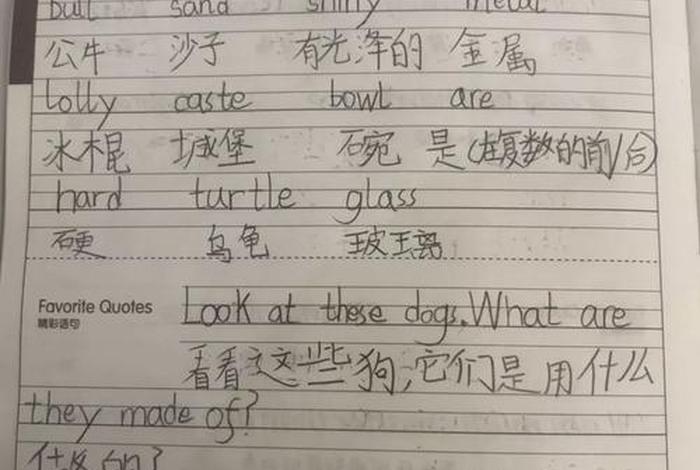 bull sand shiny metal
公牛 沙子 有光泽的 金属
lolly caste bowl are
冰棍 城堡 碗 是(在复数的前/后)
hard turtle glass
硬 乌龟 玻璃
Favorite Quotes Look at these dogs. What are
精彩语句
看看这些狗,它们是用什么
they made of?
什么的?